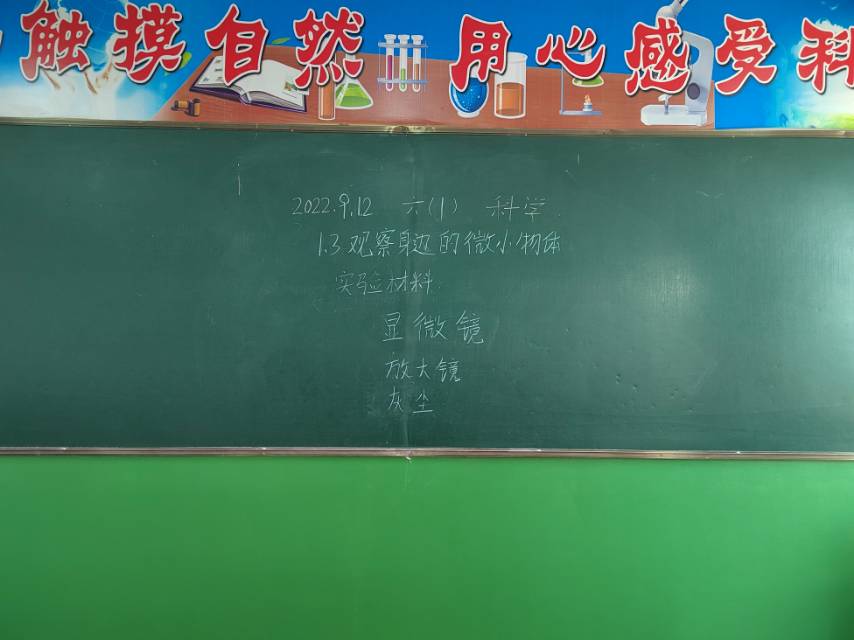 触摸自然 用心感受科
2022.9.12 六(1) 科学
1.3 观察身边的微小物体
实验材料:
显微镜
放大镜
灰尘